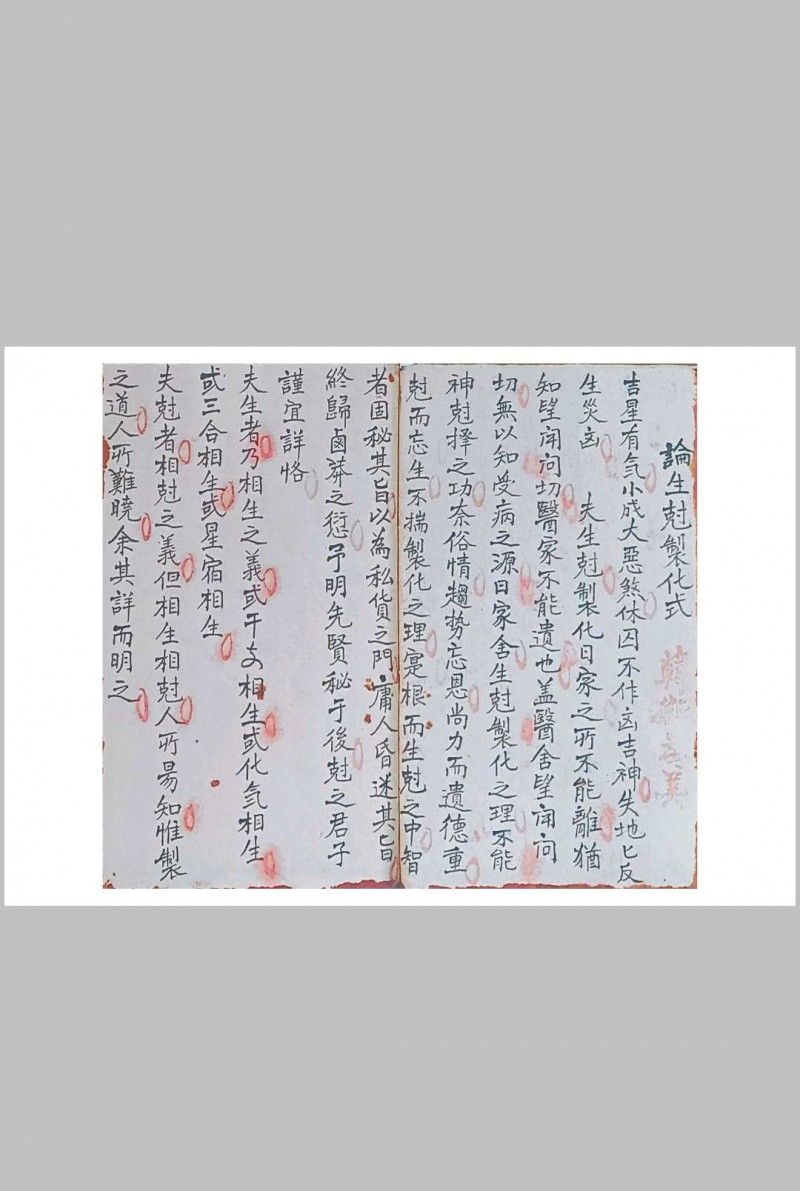 論生尅製化式
吉星有気小成大惡煞休囚不作凶吉神失地匕反
生災凶 夫生尅製化日家之所不能離猶
知望闻问切醫家不能遺也盖醫舍望闻问
切無以知受病之源日家舍生尅製化之理不能
神尅擇之功奈俗情趨势忘恩尚力而遺德重
尅而忘生不揣製化之理寔根而生尅之中智
者固秘其旨以為私貨之門庸人昏迷其旨
終歸鹵莽之愆予明先賢秘于後尅之君子
謹宜詳恪
夫生者乃相生之義或干支相生或化気相生
或三合相生或星宿相生
夫尅者相尅之義但相生相尅人所易知惟製
之道人所難曉余其詳而明之